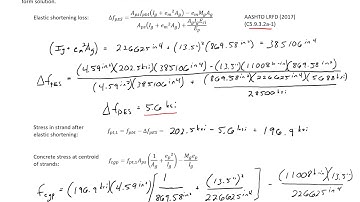 form solution.
Elastic shortening loss: Δf_pES = (A_ps f_pbt (I_g + e_m² A_g) − e_m M_g A_g) / (A_ps (I_g + e_m² A_g) + (A_g I_g E_ci / E_p)) AASHTO LRFD (2017)
(C5.9.3.2.3a-1)
(I_g + e_m² A_g) = 226625 in⁴ + (13.5")² (869.58 in²) = 385106 in⁴
Δf_pES = ((4.59 in²)(202.5 ksi)(385106 in⁴) − (13.5")(11008 k·in)(869.58 in²)) / ((4.59 in²)(385106 in⁴) + ((869.58 in²)(226625 in⁴)(5688 ksi) / 28500 ksi))
Δf_pES = 5.6 ksi
Stress in strand after elastic shortening: f_pt.s = f_pbt − Δf_pES = 202.5 ksi − 5.6 ksi = 196.9 ksi
Concrete stress at centroid of strands: f_cgp = f_pt.s A_ps (1/A_g + e_p²/I_g) − M_g e_p / I_g
f_cgp = (196.9 ksi)(4.59 in²) [1 / 869.58 in² + (13.5")² / 226625 in⁴] − (11008 k·in)(13.5 / 226625 in⁴